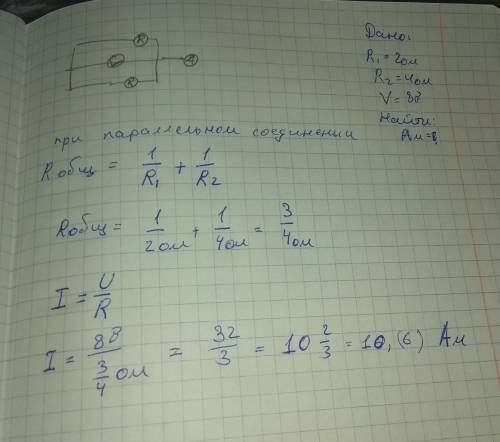 Дано:
R₁ = 2ом
R₂ = 4ом
V = 8В
Найти:
Ам=
при параллельном соединении
Rобщ = 1/R₁ + 1/R₂
Rобщ = 1/2ом + 1/4ом = 3/4ом
I = U/R
I = 8В/(3/4 ом) = 32/3 = 10 2/3 = 10,(6) Ам